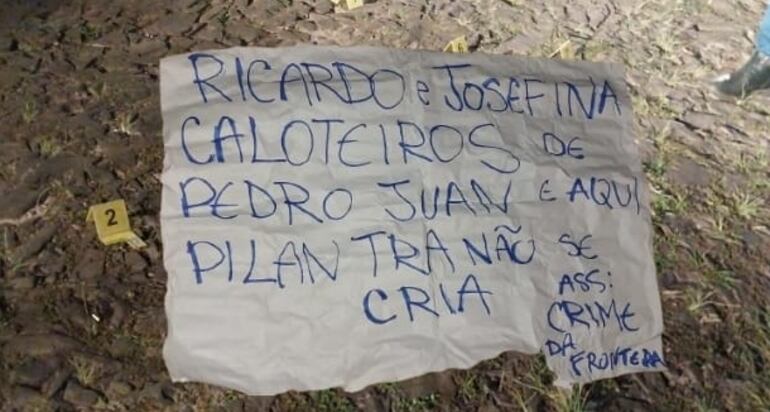 RICARDO e JOSEFINA
CALOTEIROS DE
PEDRO JUAN E AQUI
PILANTRA NÃO SE
CRIA
ASS:
CRIME
DA
FRONTERA
2